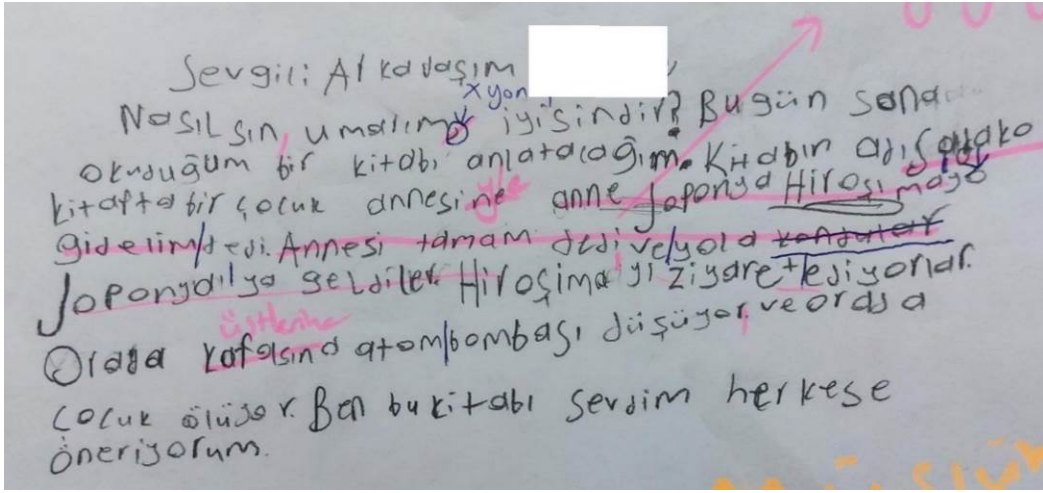 Sevgili Arkadaşım
x yon
Nasılsın, umarım iyisindir? Bugün sana
okuduğum bir kitabı anlatacağım. Kitabın adı Sadako
kitapta bir çocuk annesine anne Japonya Hiroşimaya
gidelim dedi. Annesi tamam dedi ve yola kondular
Japonya'ya geldiler. Hiroşimayı ziyaret ediyorlar.
üstlerine
Orada kafasına atom bombası düşüyor ve orda
çocuk ölüyor. Ben bu kitabı sevdim herkese
öneriyorum.